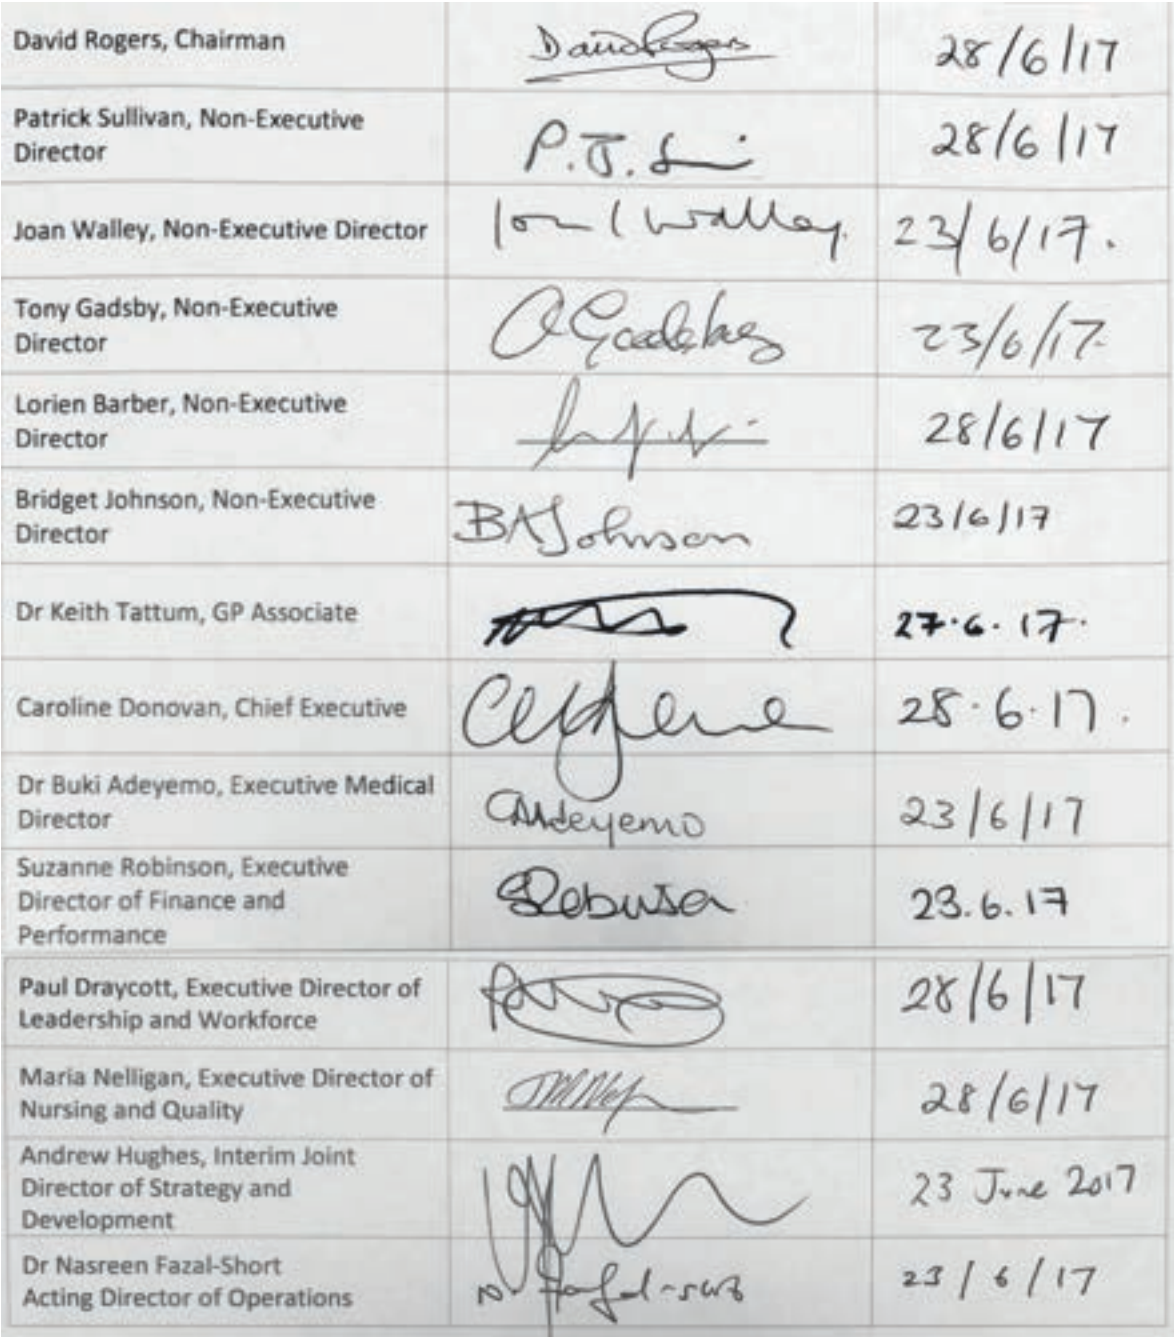 David Rogers, Chairman David Rogers 28/6/17
Patrick Sullivan, Non-Executive
Director P.J. 28/6/17
Joan Walley, Non-Executive Director Joan Walley. 23/6/17.
Tony Gadsby, Non-Executive
Director A Gadsby 23/6/17
Lorien Barber, Non-Executive
Director 28/6/17
Bridget Johnson, Non-Executive
Director BAJohnson 23/6/17
Dr Keith Tattum, GP Associate 27.6.17.
Caroline Donovan, Chief Executive 28.6.17.
Dr Buki Adeyemo, Executive Medical
Director Adeyemo 23/6/17
Suzanne Robinson, Executive
Director of Finance and
Performance 23.6.17
Paul Draycott, Executive Director of
Leadership and Workforce 28/6/17
Maria Nelligan, Executive Director of
Nursing and Quality 28/6/17
Andrew Hughes, Interim Joint
Director of Strategy and
Development 23 June 2017
Dr Nasreen Fazal-Short
Acting Director of Operations N Fazal-Short 23/6/17